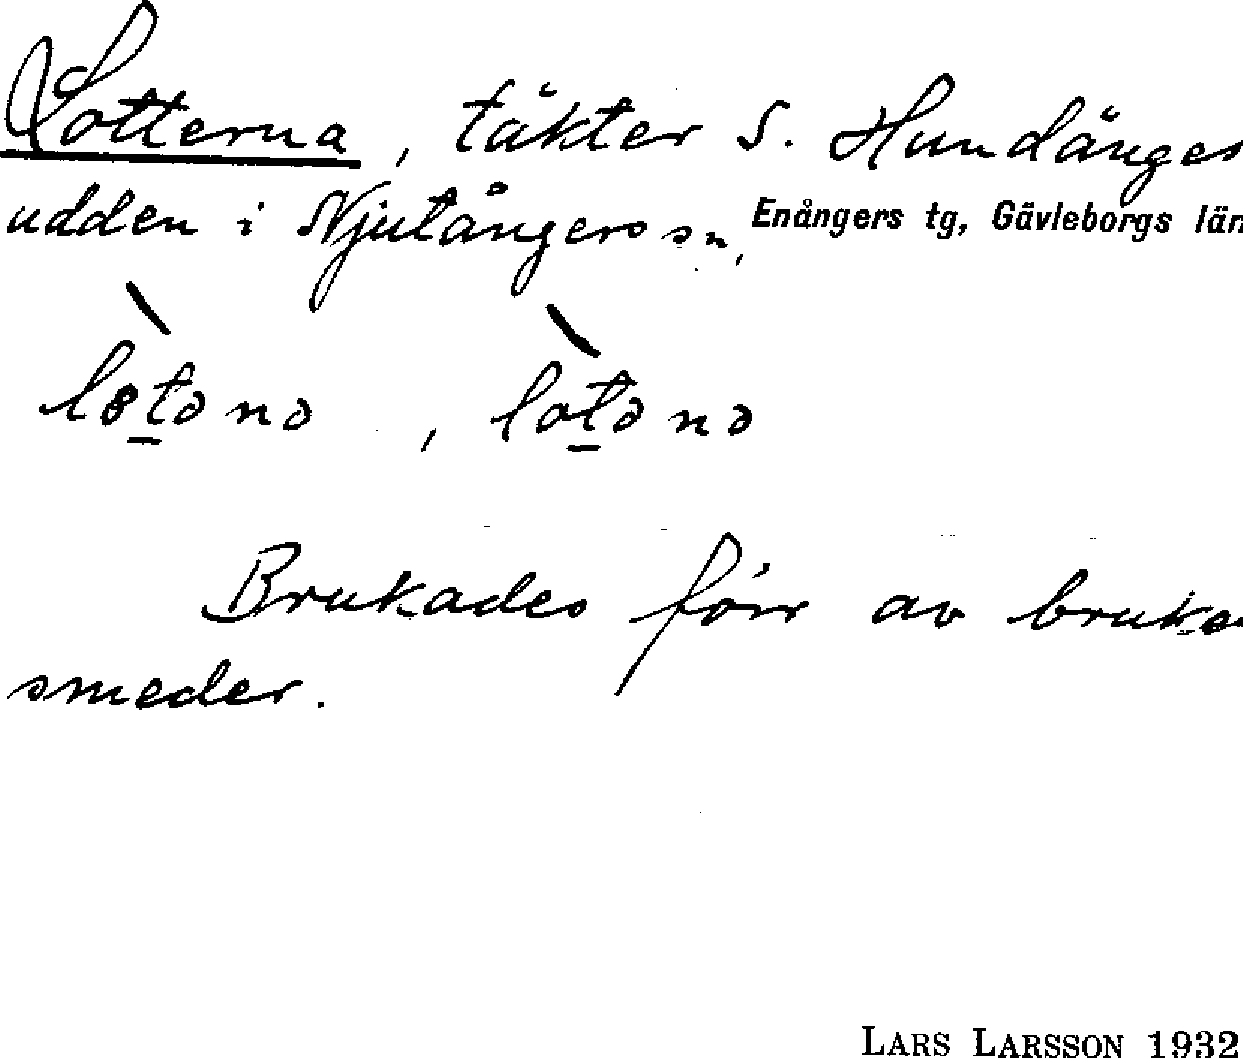 Lotterna, täkter S. Hundänges
udden i Njutångers sn, Enångers tg, Gävleborgs län
lo̠tənə, lot̠ənə
Brukades förr av bruks
smeder.
LARS LARSSON 1932